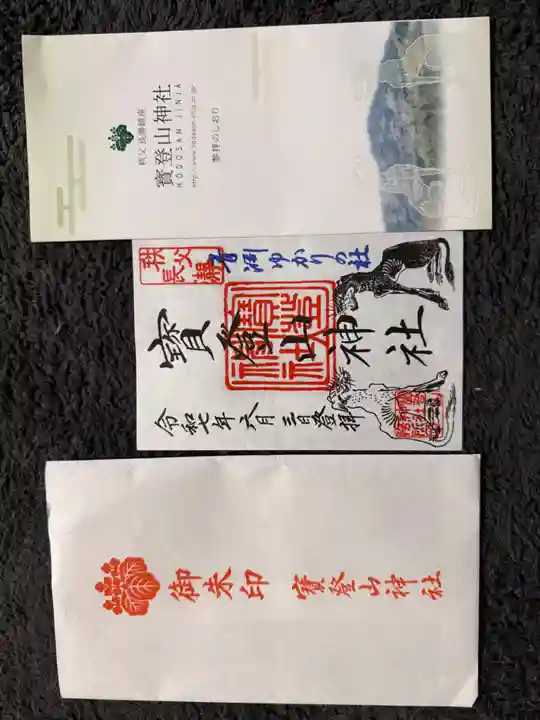 秩父 長瀞鎮座
寳登山神社
HODOSAN JINJA
http://www.hodosan-jinja.or.jp/
参拝のしおり
秩父
長瀞
青淵ゆかりの社
寳登山神社
令和七年六月三日登拝
御朱印
寳登山神社